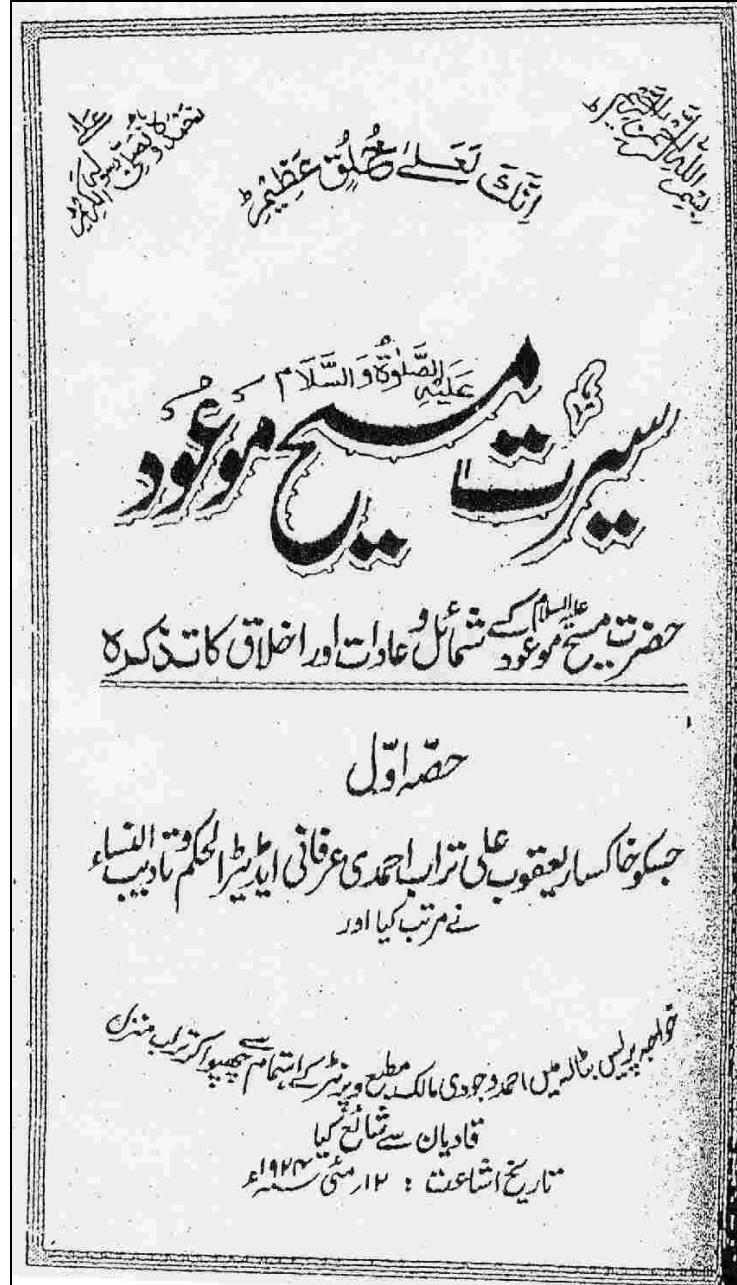 بسم اللہ الرحمن الرحیم
انک لعلےٰ خلق عظیم
نحمدہ و نصلی علےٰ رسولہ الکریم
سیرت مسیح موعود
علیہ الصلوٰۃ والسلام
حضرت مسیح موعود علیہ السلام کے شمائل و عادات اور اخلاق کا تذکرہ
حصہ اوّل
جسکو خاکسار یعقوب علی تراب احمدی عرفانی ایڈیٹر الحکم و تادیب النساء
نے مرتب کیا اور
خواجہ پریس بٹالہ میں احمد وجودی مالک مطبع و پرنٹر کے اہتمام سے چھپوا کر تراب منزل
قادیان سے شائع کیا
تاریخ اشاعت : ۱۲ مئی سنہ ۱۹۲۴ء